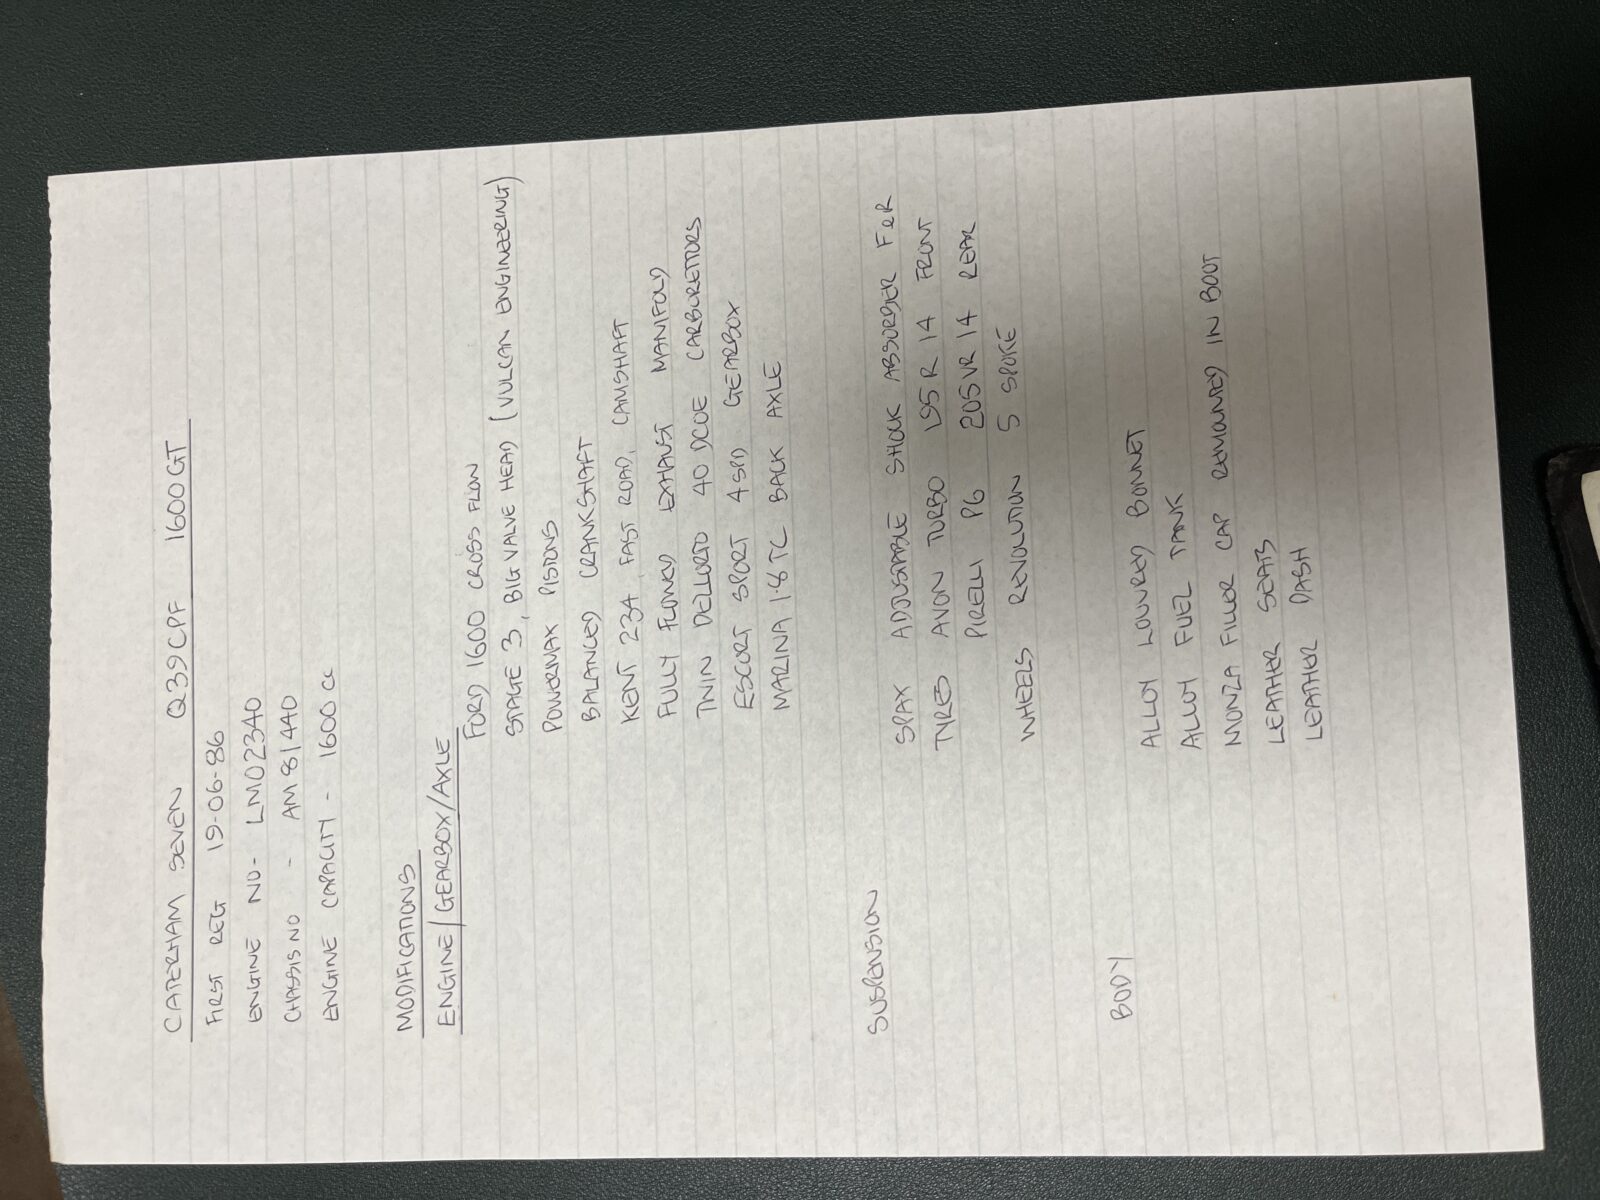 CATERHAM SEVEN Q39CPF 1600GT
FIRST REG 19-06-86
ENGINE NO- LM02340
CHASSIS NO - AM81440
ENGINE CAPACITY - 1600 cc
MODIFICATIONS
ENGINE/GEARBOX/AXLE
FORD 1600 CROSS FLOW
STAGE 3, BIG VALVE HEAD (VULCAN ENGINEERING)
POWERMAX PISTONS
BALANCED CRANKSHAFT
KENT 234, FAST ROAD, CAMSHAFT
FULLY FLOWED EXHAUST MANIFOLD
TWIN DELLORTO 40 DCOE CARBURETTORS
ESCORT SPORT 4SPD GEARBOX
MARINA 1.8 TC BACK AXLE
SUSPENSION
SPAX ADJUSTABLE SHOCK ABSORBER F&R
TYRES AVON TURBO 195 R 14 FRONT
PIRELLI P6 205 VR 14 REAR
WHEELS REVOLUTION 5 SPOKE
BODY
ALLOY LOUVRED BONNET
ALLOY FUEL TANK
MONZA FILLER CAP REMOUNTED IN BOOT
LEATHER SEATS
LEATHER DASH